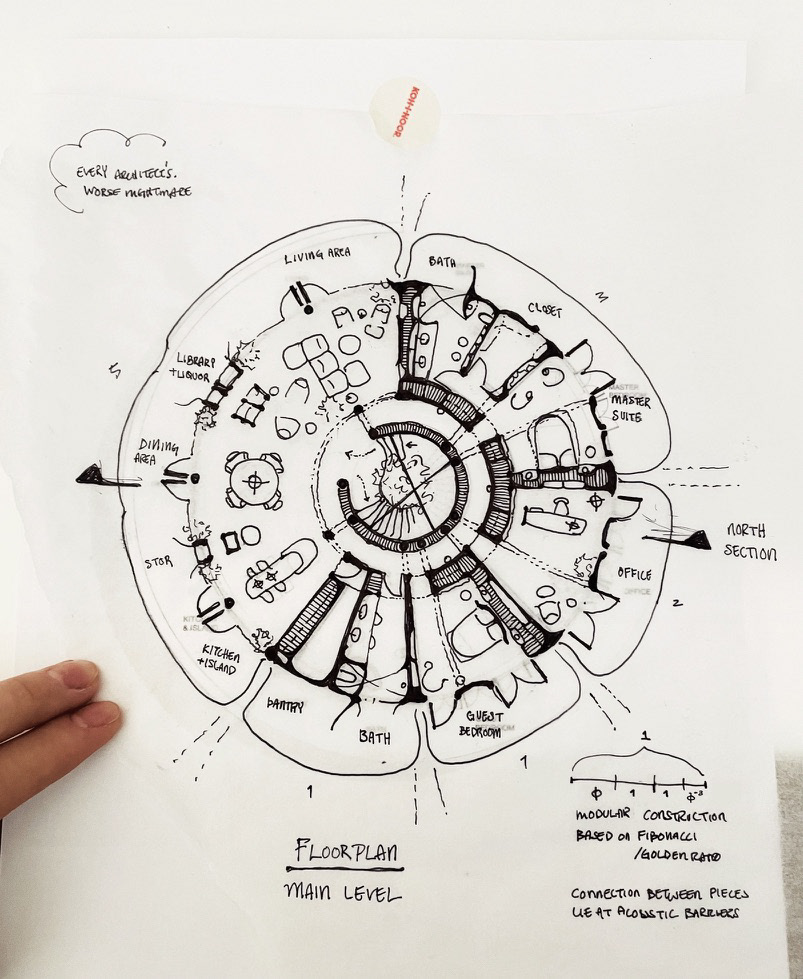 KOH-I-NOOR
EVERY ARCHITECT'S.
WORSE NIGHTMARE
LIVING AREA
BATH
CLOSET
3
5
LIBRARY
+LIQUOR
MASTER
SUITE
DINING
AREA
NORTH
SECTION
STOR
OFFICE
OFFICE
2
KITCHEN
+ISLAND
PANTRY
BATH
GUEST
BEDROOM
1
1
1
Φ 1 1 Φ⁻³
MODULAR CONSTRICTION
BASED ON FIBONACCI
/GOLDEN RATO
FLOORPLAN
MAIN LEVEL
CONNECTION BETWEEN PIECES
LIE AT ACOUSTIC BARRIERS